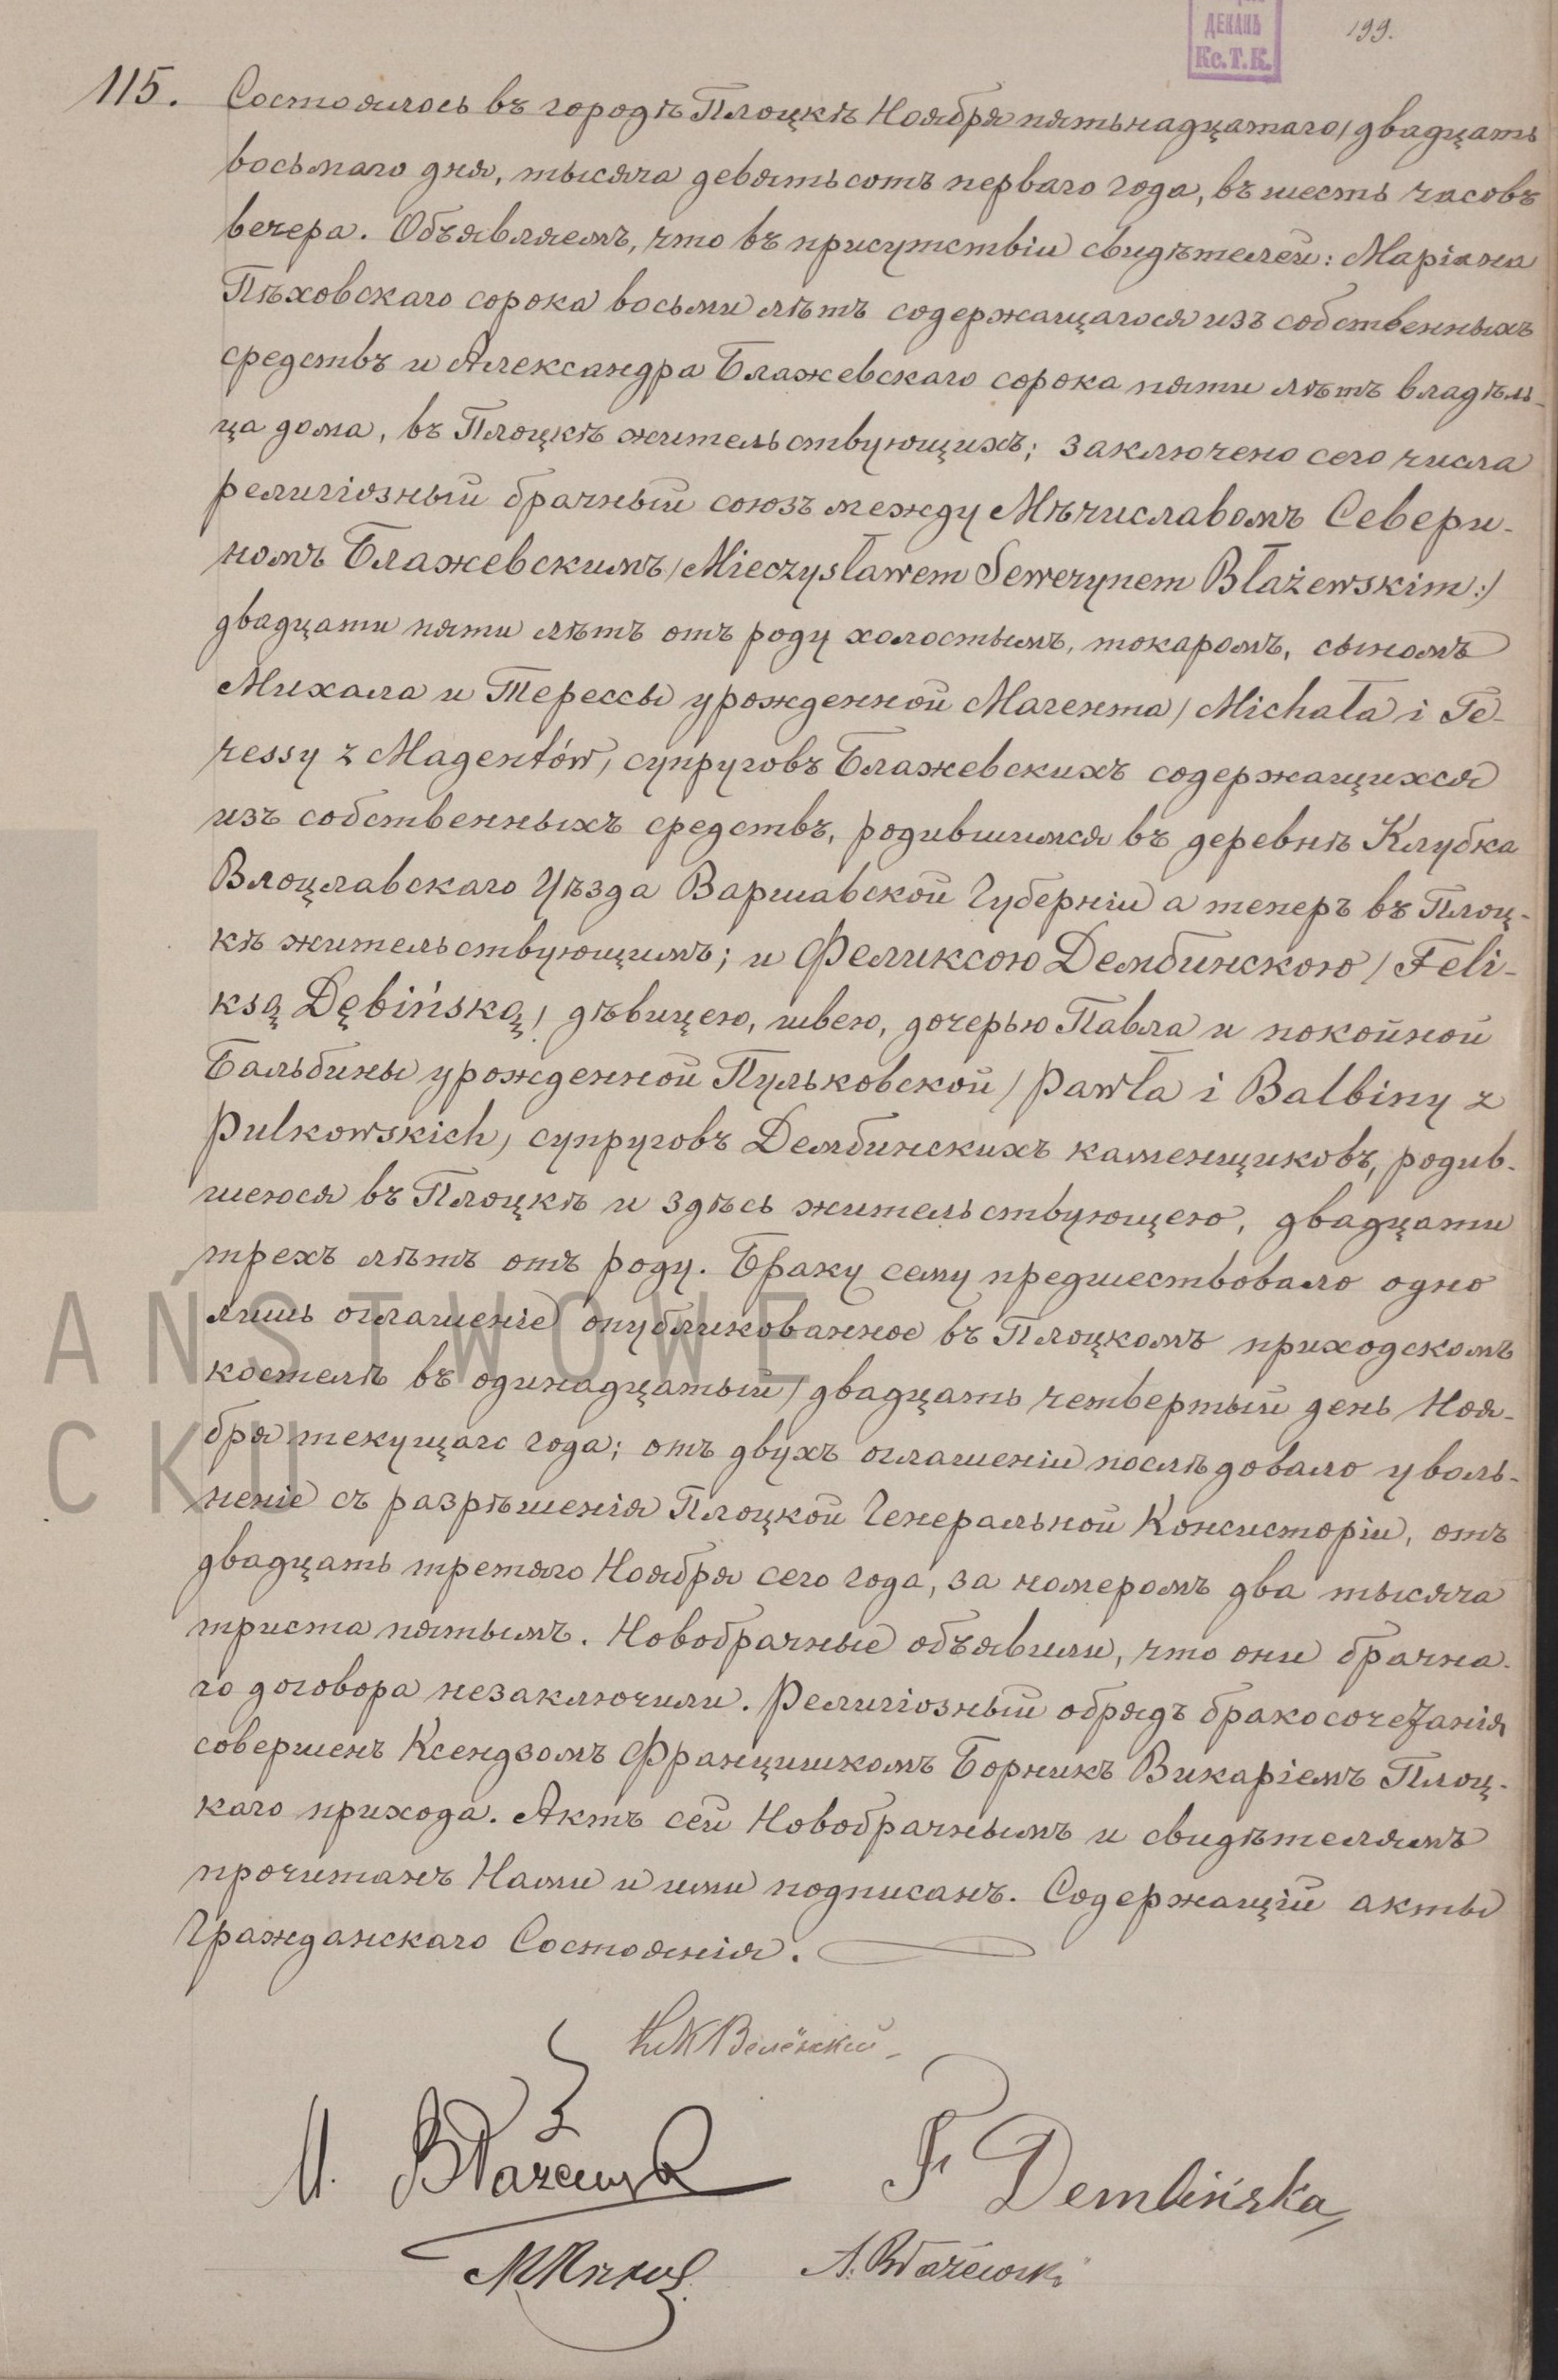 ДЕКАНЪ
Кс. Т. К.
199.
115. Состоялось въ городѣ Плоцкѣ Ноября пятьнадцатаго/двадцать
восьмаго дня, тысяча девятьсотъ перваго года, въ шесть часовъ
вечера. Объявляемъ, что въ присутствіи свидѣтелей: Маріана
Пѣховскаго сорока восьми лѣтъ содержащагося изъ собственныхъ
средствъ и Александра Блажевскаго сорока пяти лѣтъ владѣль-
ца дома, въ Плоцкѣ жительствующихъ; заключено сего числа
религіозный брачный союзъ между Мѣчиславомъ Севери-
номъ Блажевскимъ /Mieczysławem Sewerynem Błażewskim:/
двадцати пяти лѣтъ отъ роду холостымъ, токаромъ, сыномъ
Михала и Терессы урожденной Магента /Michała i Te-
ressy z Magentów/ супруговъ Блажевскихъ содержащихся
изъ собственныхъ средствъ, родившимся въ деревнѣ Клубка
Влоцлавскаго Уѣзда Варшавской Губерніи а теперъ въ Плоц-
кѣ жительствующимъ; и Феликсою Дембинскою /Feli-
ksą Dębińską/ дѣвицею, швею, дочерью Павла и покойной
Бальбины урожденной Пульковской /Pawła i Balbiny z
Pulkowskich/ супруговъ Дембинскихъ каменщиковъ, родив-
шеюся въ Плоцкѣ и здѣсь жительствующею, двадцати
трехъ лѣтъ отъ роду. Браку сему предшествовало одно
лишь оглашеніе опубликованное въ Плоцкомъ приходскомъ
костелѣ въ одинадцатый/двадцать четвертый день Ноя-
бря текущаго года; отъ двухъ оглашеніи послѣдовало уволь-
неніе съ разрѣшенія Плоцкой Генеральной Консисторіи, отъ
двадцать третяго Ноября сего года, за номеромъ два тысяча
триста пятымъ. Новобрачные объявили, что они брачна-
го договора незаключили. Религіозный обрядъ бракосочетанія
совершенъ Ксендзомъ Францишкомъ Борникъ Викаріемъ Плоц-
каго прихода. Актъ сей Новобрачнымъ и свидѣтелямъ
прочитанъ Нами и ими подписанъ. Содержащій акты
Гражданскаго Состоянія.
M. Błażewski F. Dembińska
A. Błażewski
AŃSTWOWE
CKU